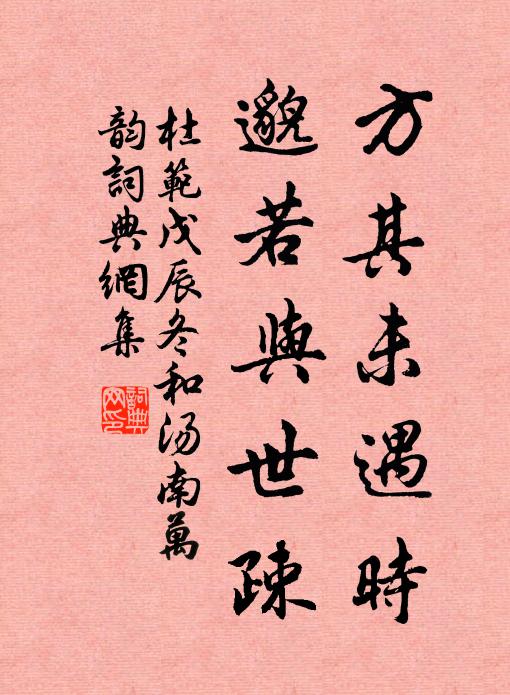 方其未遇時
邈若與世疎
杜範戊辰冬和湯南萬
韵詞典網集
詞典
网印